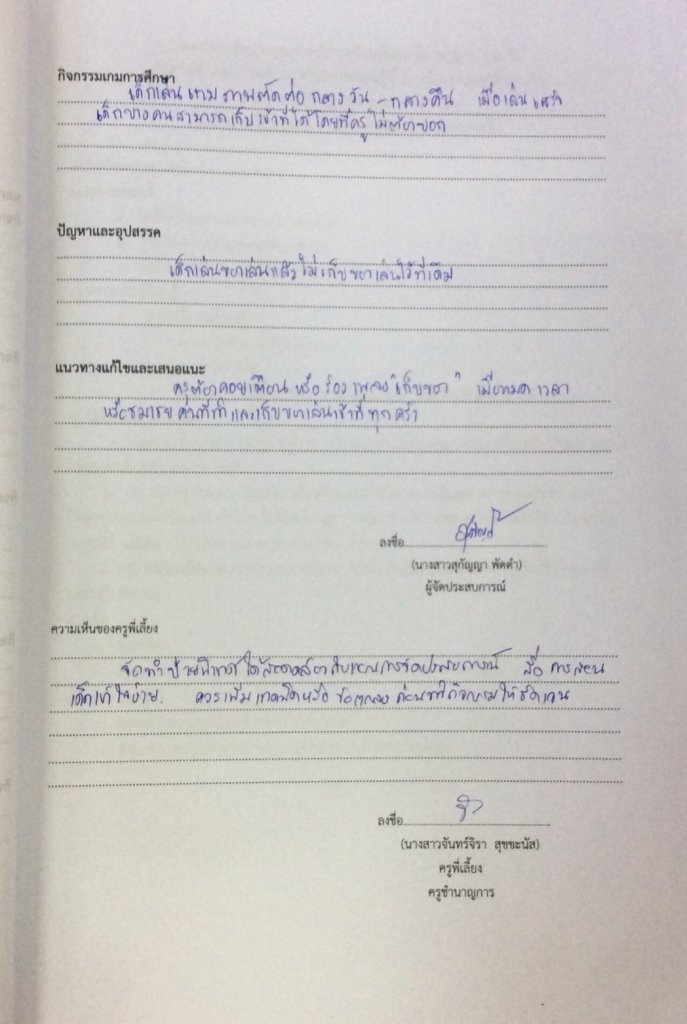 กิจกรรมเกมการศึกษา
เด็กเล่นเกมภาพตัดต่อ กลางวัน - กลางคืน เมื่อเล่นเสร็จ
เด็กบางคนสามารถเก็บเข้าที่ได้โดยที่ครูไม่ต้องบอก
ปัญหาและอุปสรรค
เด็กเล่นของเล่นแล้วไม่เก็บของเล่นไว้ที่เดิม
แนวทางแก้ไขและเสนอแนะ
ครูต้องคอยเตือน หรือ ร้องเพลง "เก็บของ" เมื่อหมดเวลา
หรือชมเชย คนที่ทำและเก็บของเล่นเข้าที่ทุกครั้ง
ลงชื่อ
(นางสาวสุกัญญา พัดดำ)
ผู้จัดประสบการณ์
ความเห็นของครูพี่เลี้ยง
จัดทำป้ายนิเทศได้สอดคล้องกับแผนการจัดประสบการณ์ สื่อการสอน
เด็กเข้าใจง่าย. ควรเพิ่มเทคนิคหรือ ข้อตกลง ก่อนทำกิจกรรมให้ชัดเจน
ลงชื่อ
(นางสาวจันทร์จิรา สุขขะนัส)
ครูพี่เลี้ยง
ครูชำนาญการ